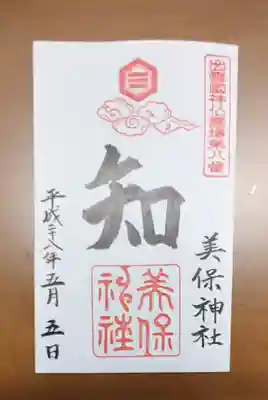 出雲國神仏霊場第八番
三
美保神社
知
美保
神社
平成二十八年五月五日